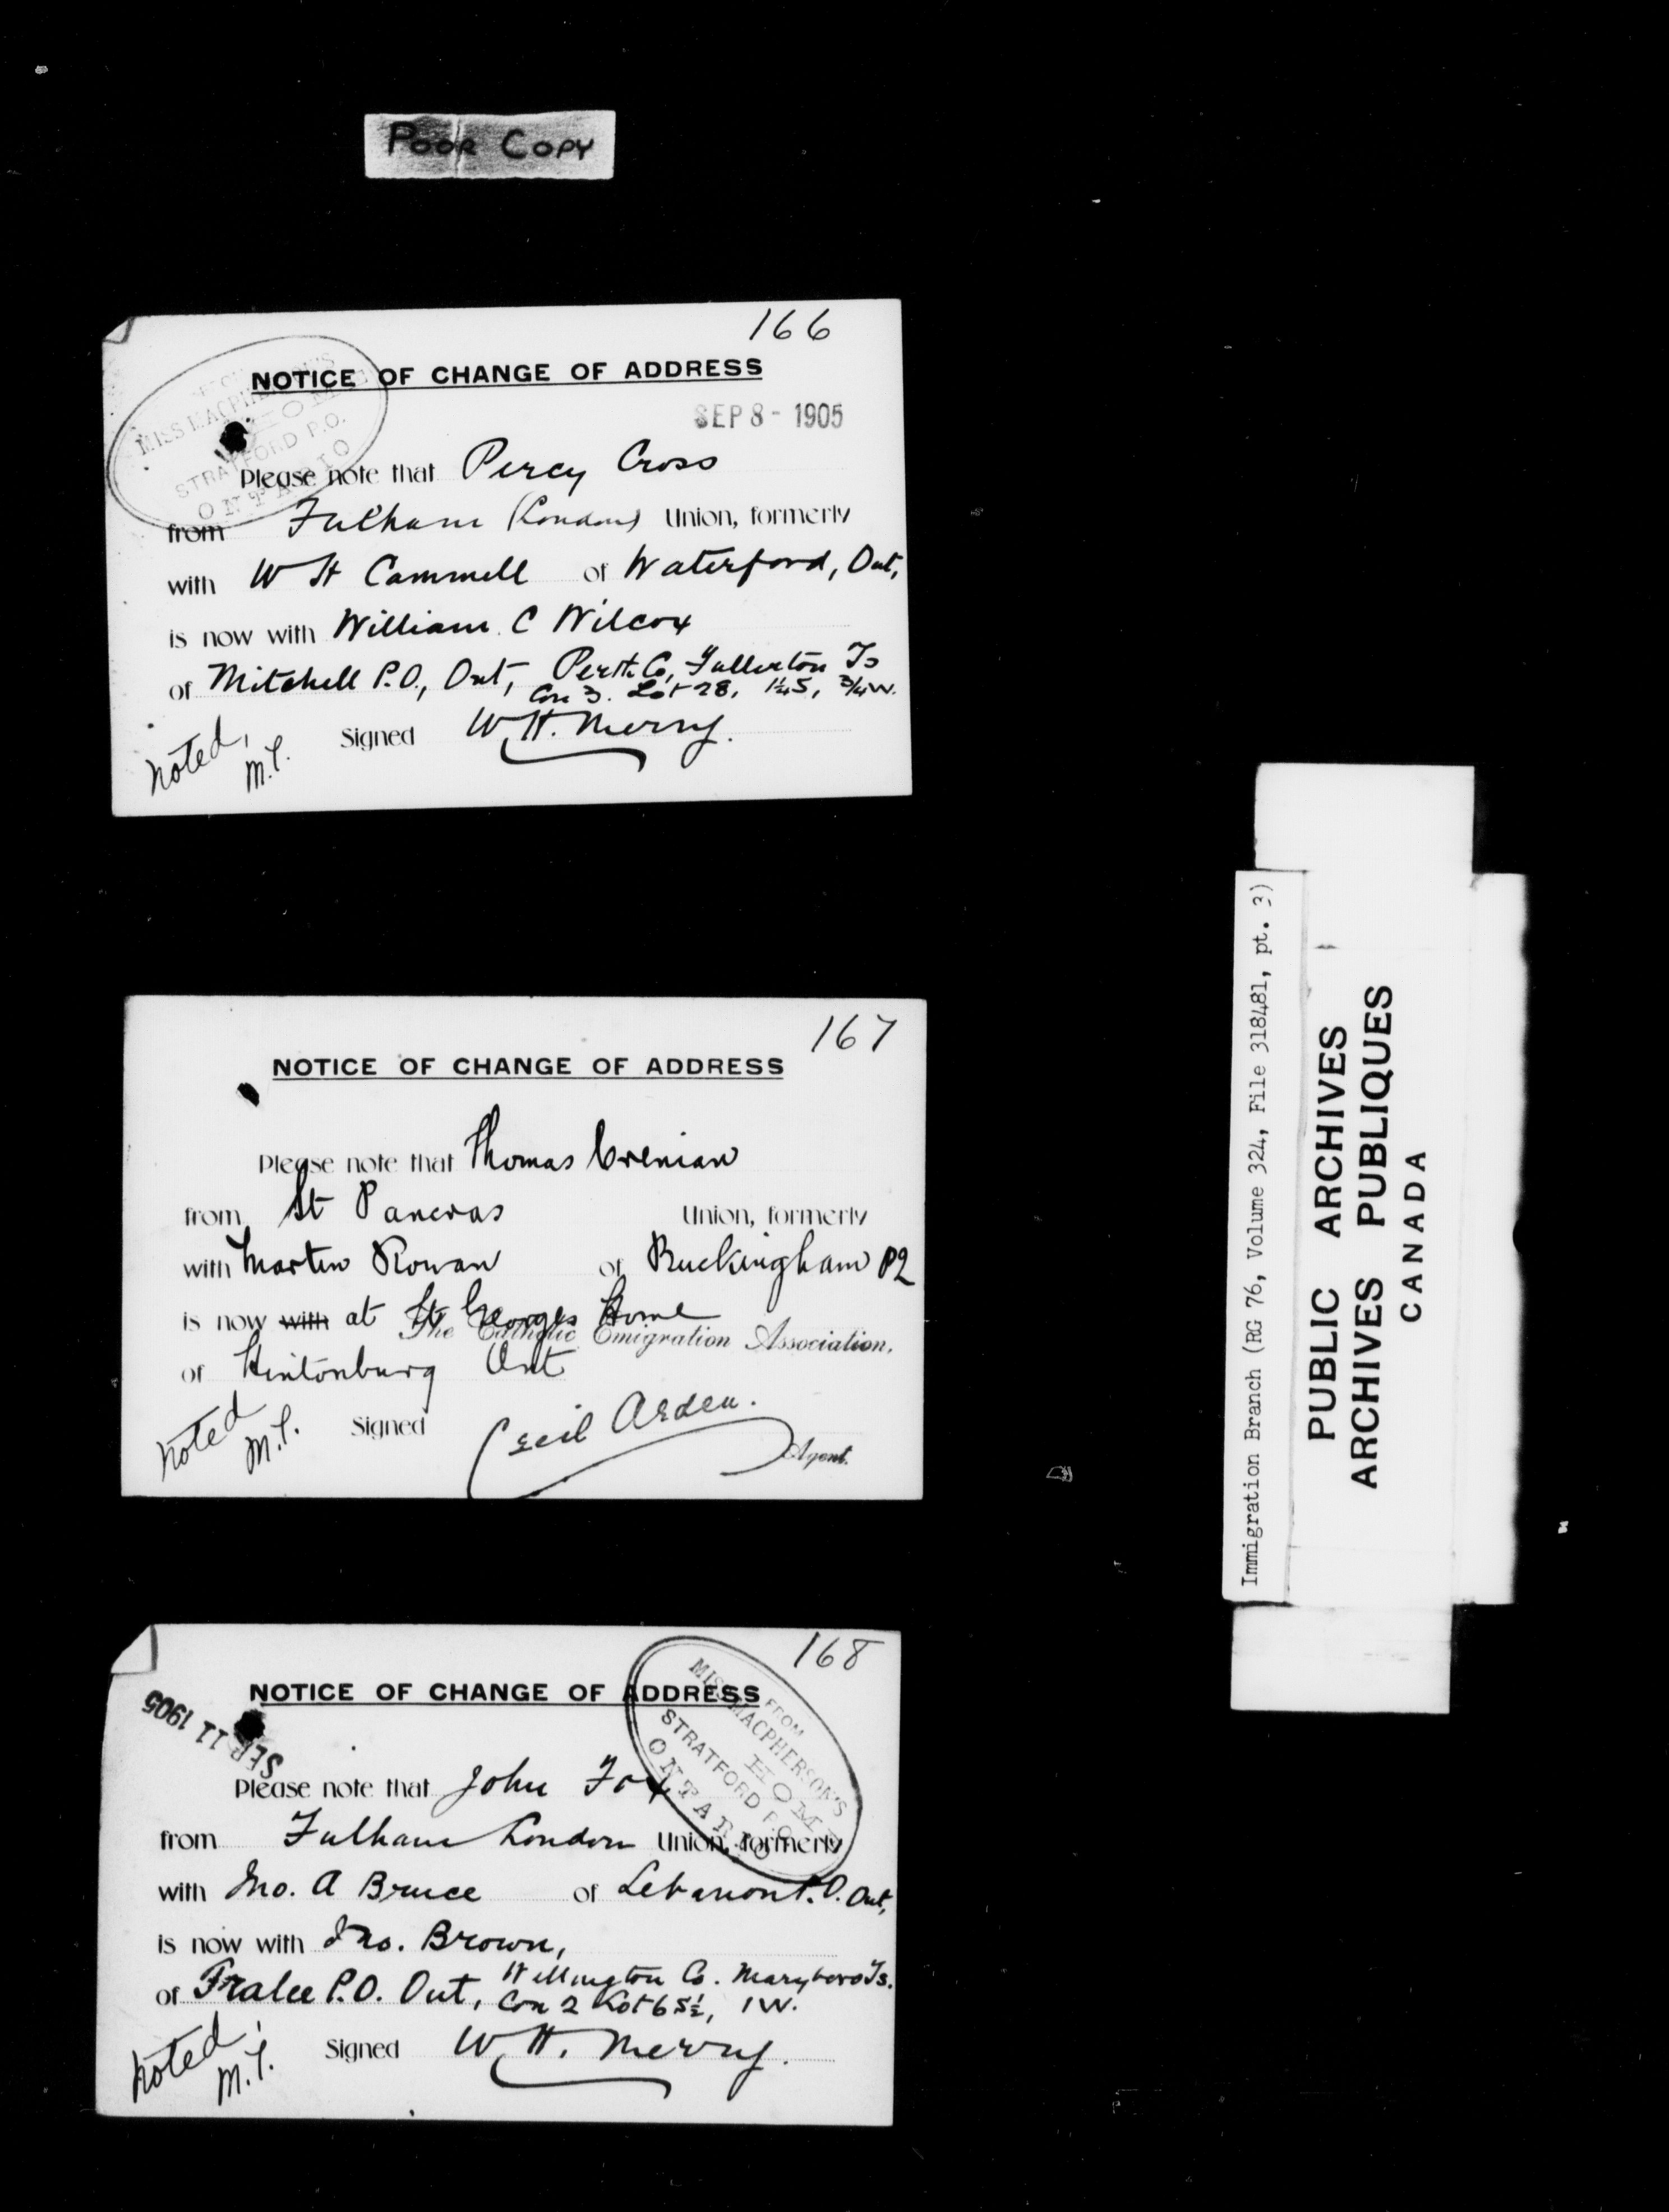 POOR COPY
166
NOTICE OF CHANGE OF ADDRESS
SEP 8 - 1905
MISS MACPHERSON'S
HOME
STRATFORD P.O.
ONTARIO
Please note that Percy Cross
from Fulham (London) Union, formerly
with W H Cammell of Waterford, Ont,
is now with William C Wilcox
of Mitchell P.O., Ont, Perth Co, Fullerton Ts
Con 3. Lot 28, 1¼ S, ¾ W.
Signed W. H. Merry.
Noted,
167
NOTICE OF CHANGE OF ADDRESS
Please note that Thomas Crenian
from St Pancras Union, formerly
with Martin Rowan of Buckingham PQ
is now with at St Georges Home
The Catholic Emigration Association,
of Hintonburg Ont
Signed Cecil Arden.
Agent.
Noted
168
NOTICE OF CHANGE OF ADDRESS
SEP 11 1905
FROM
MISS MACPHERSON'S
HOME
STRATFORD P.O.
ONTARIO
Please note that John Fox
from Fulham London Union, formerly
with Jno. A Bruce of Lebanon P.O. Ont,
is now with Jno. Brown,
of Tralee P.O. Ont, Wellington Co. Maryboro Ts.
Con 2 Lot 6 S½, 1 W.
Signed W. H. Merry.
Noted,
Immigration Branch (RG 76, Volume 324, File 318481, pt. 3)
PUBLIC ARCHIVES
ARCHIVES PUBLIQUES
CANADA